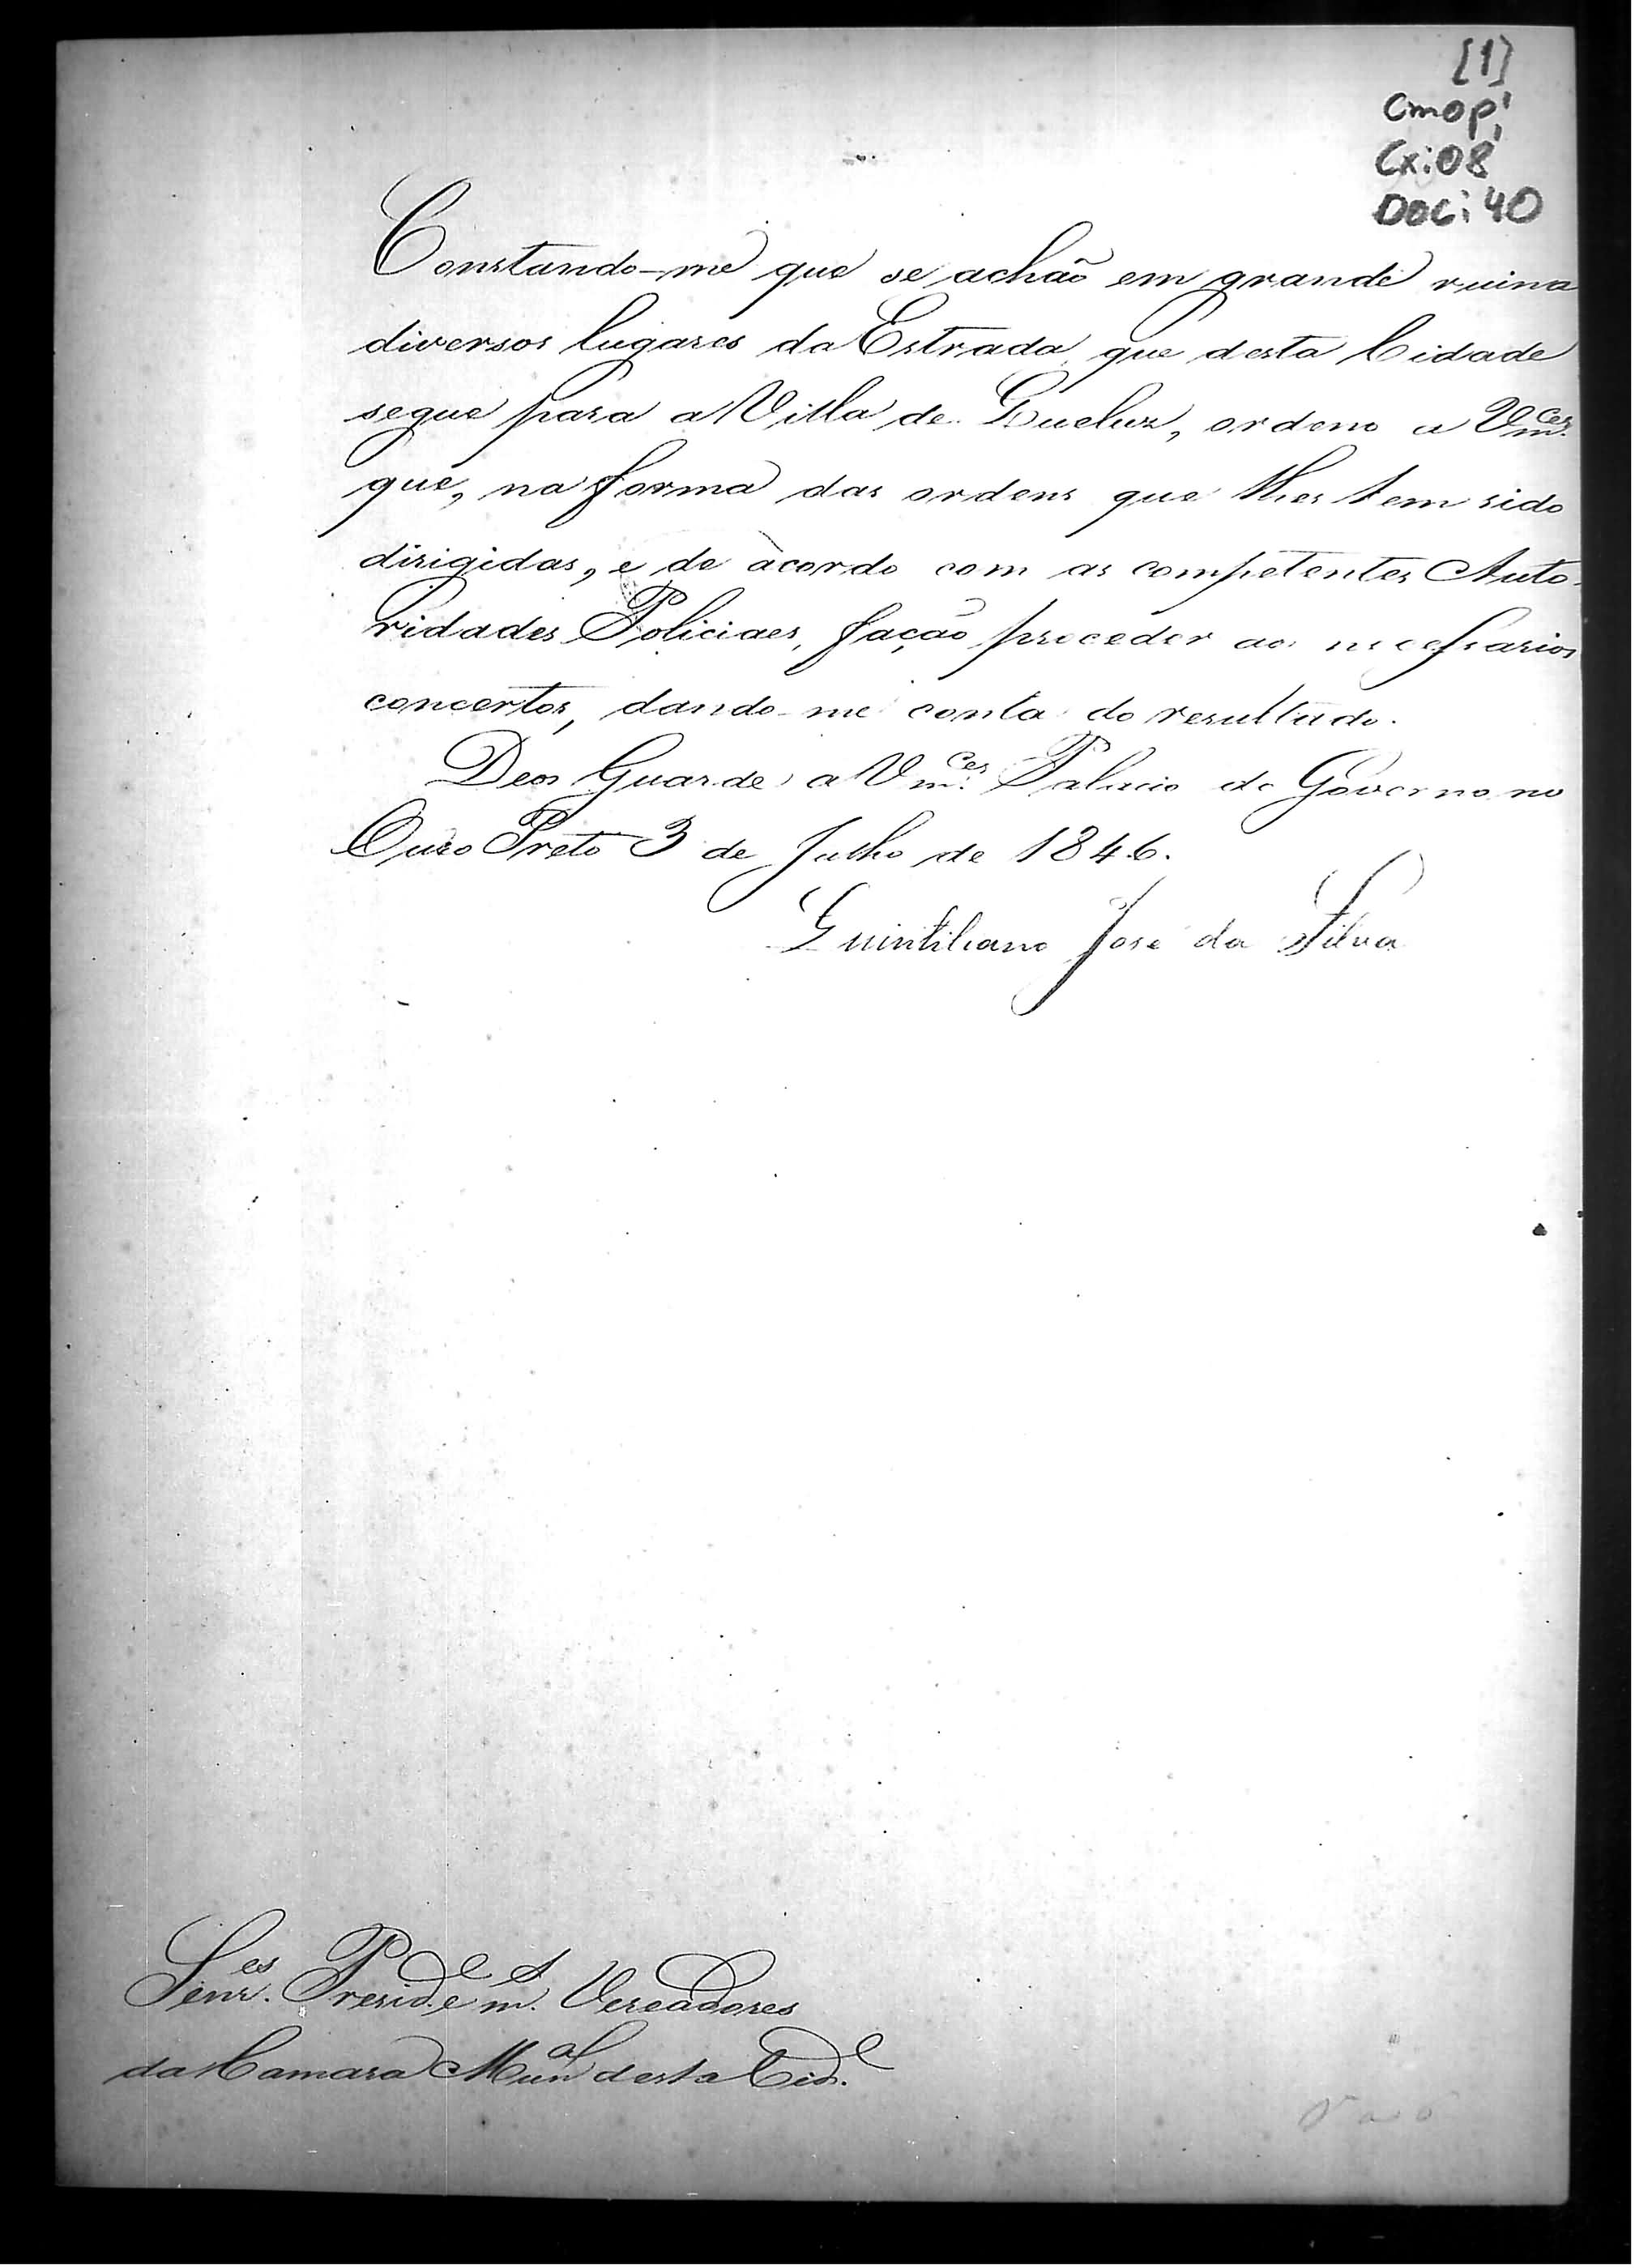 [1]
CMOP;
Cx:08
Doc: 40
Constando-me que se achão em grande ruina
diversos lugares da Estrada, que desta Cidade
segue para a Villa de Queluz, ordeno a Vm.ces
que, na forma das ordens que lhes tem sido
dirigidas, e de acordo com as competentes Auto-
ridades Policiaes, fação proceder aos necessarios
concertos, dando-me conta do resultado.
Deos Guarde a Vm.ces Palacio do Governo no
Ouro Preto 3 de Julho de 1846.
Quintiliano José da Silva
Senr.es Presid.e e m. Vereadores
da Camara Mun.al desta Cid.e